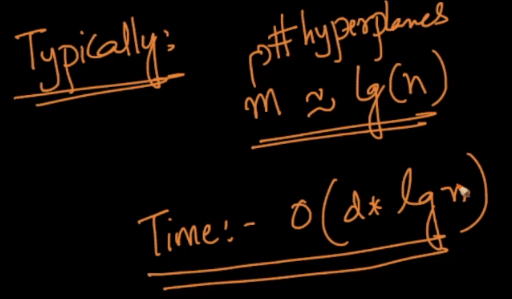 Typically:
# hyperplanes
m ≈ lg(n)
Time:- O(d* lg n)